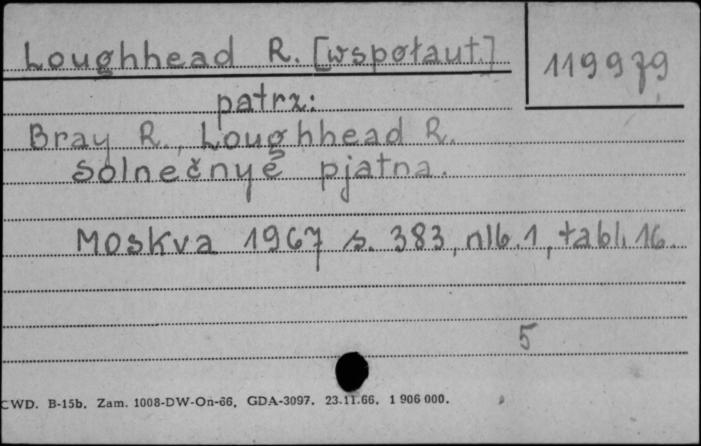 Loughhead R. [wspołaut.]
119979
patrz:
Bray R., Loughhead R.
Solnečnye pjatna.
Moskva 1967 s. 383, nlb. 1, tabl. 16.
5
CWD. B-15b. Zam. 1008-DW-On-66. GDA-3097. 23.11.66. 1 906 000.